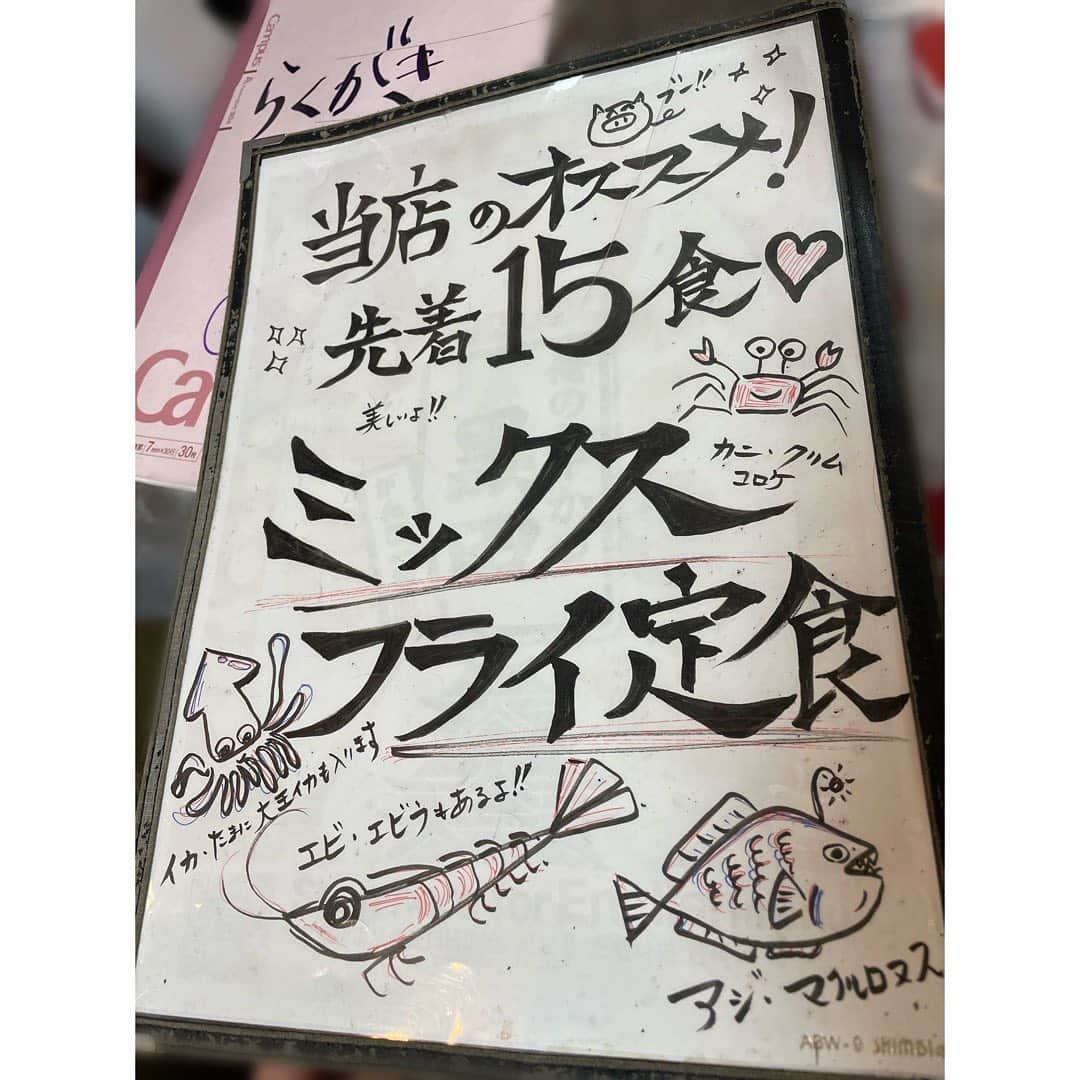 Campus
らくがき
ブー!!
当店のオススメ!
先着15食
美しいよ!!
カニ・クリム
コロケ
ミックス
フライ定食
イカ・たまに大王イカも入ります
エビ・エビラもあるよ!!
アジ・マクルロヌス
Ca
7mm×30行/30枚
ABW-